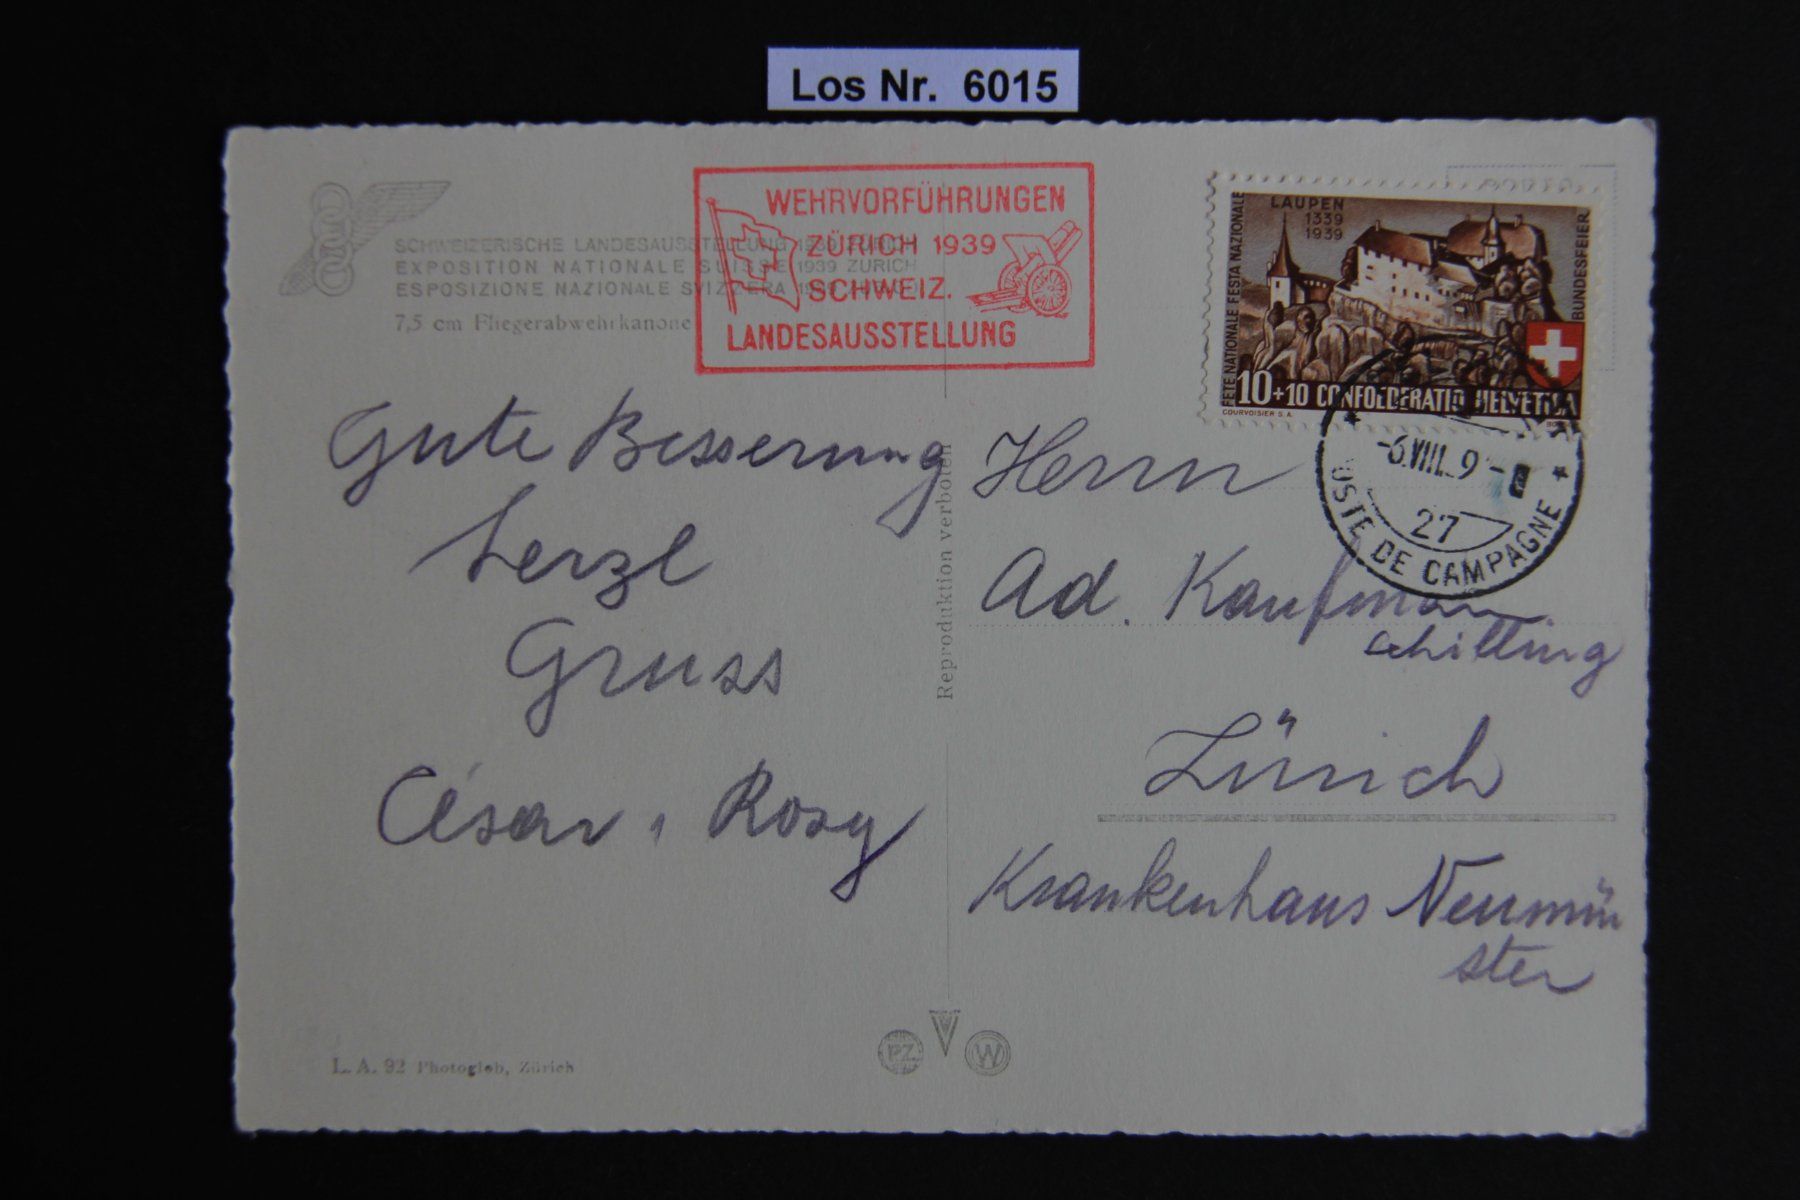 Los Nr. 6015
SCHWEIZERISCHE LANDESAUSSTELLUNG 1939 ZÜRICH
EXPOSITION NATIONALE SUISSE 1939 ZURICH
ESPOSIZIONE NAZIONALE SVIZZERA 1939 ZURIGO
7,5 cm Fliegerabwehrkanone
WEHRVORFÜHRUNGEN
ZÜRICH 1939
SCHWEIZ.
LANDESAUSSTELLUNG
LAUPEN
1339
1939
FETE NATIONALE FESTA NAZIONALE
BUNDESFEIER
10+10 CONFOEDERATIO HELVETICA
COURVOISIER S.A.
-6.VIII. 9-
27
POSTE DE CAMPAGNE
Gute Besserung
herzl
Gruss
César, Rosy
Reproduktion verboten
Herrn
Ad. Kaufman
Zürich
Krankenhaus Neumün
ster
L. A. 92 Photoglob, Zürich
PZ
W